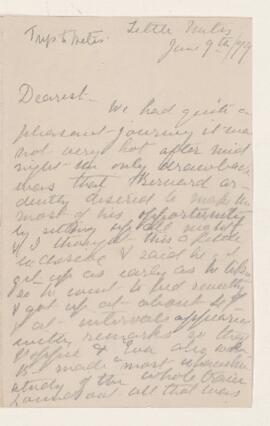 Trip to Metis. Little Metis
June 9th/79
Dearest -
We had quite a
pleasant journey it was
not very hot after mid
night - the only drawback
was that Bernard ar-
dently desired to make the
most of his opportunity
by sitting up all night
& I thought this a little
& said he
get up as early as he liked
so he went to bed
& got up at about
at intervals
with remarks so they
& Eva also
B. made most
study of the whole train
found out all that was